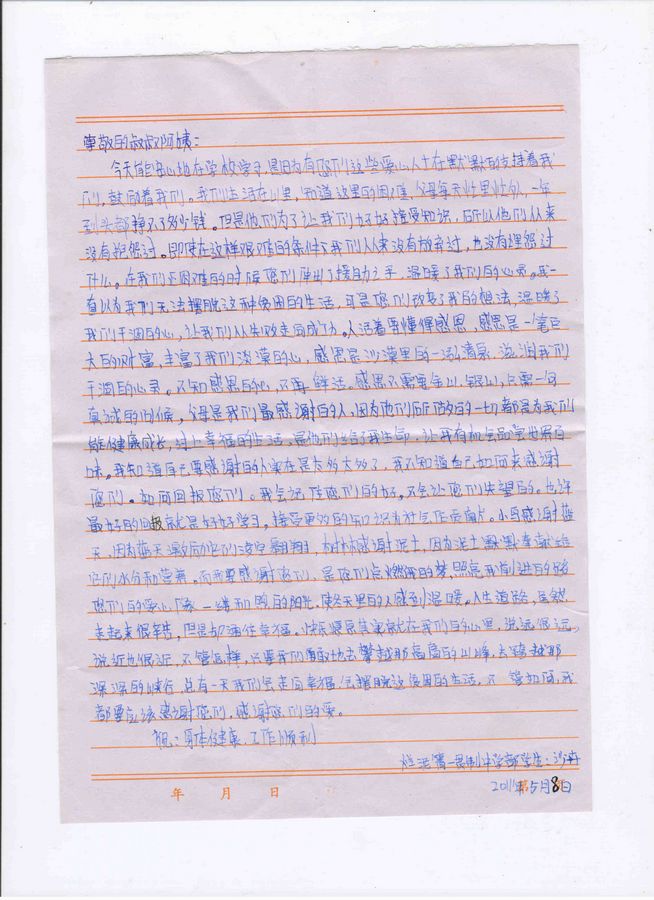 尊敬的叔叔阿姨：
今天能安心地在学校学习，是因为有您们这些爱心人士在默默的支持着我
们，鼓励着我们。我们生活在山里，知道这里的困难，父母每天忙里忙外，一年
到头都挣不了多少钱。但是他们为了让我们好好接受知识，所以他们从来
没有抱怨过。即使在这样艰难的条件下我们从来没有放弃过，也没有埋怨过
什么。在我们正困难的时候您们伸出了援助之手，温暖了我们的心灵。我一
直以为我们无法摆脱这种贫困的生活，可是您们改变了我的想法，温暖了
我们干涸的心，让我们从失败走向成功。人活着要懂得感恩，感恩是一笔巨
大的财富，丰富了我们淡漠的心，感恩是沙漠里的一泓清泉，滋润我们
干涸的心灵。不知感恩的心，不再鲜活。感恩不需要金山，银山，只需一句
真诚的问候，父母是我们最感谢的人，因为他们所做的一切都是为我们
能健康成长，过上幸福的生活，是他们给了我生命，让我有机会品尝世界百
味。我知道自己要感谢的人实在是太多太多了，我不知道自己如何来感谢
您们。如何回报您们。我会记住您们的好。不会让您们失望的。也许
最好的回报就是好好学习，接受更多的知识为社会作贡献。小鸟感谢蓝
天，因为蓝天激励它们凌空翱翔，树木感谢泥土，因为泥土默默奉献给
它们水分和营养。而我要感谢您们，是您们点燃我的梦，照亮我前进的路
您们的爱心像一缕和煦的阳光，使冬天里的人感到温暖。人生道路，虽然
走起来很辛苦，但是却通往幸福，快乐源泉其实就在我们的心里，说远很远，
说近也很近，不管怎样，只要我们勇敢地去攀越那高高的山峰，去跨越那
深深的峡谷，总有一天我们会走向幸福，会摆脱这贫困的生活，不管如何，我
都要应该感谢您们，感谢您们的爱。
祝：身体健康，工作顺利
第一民族中学部学生：
年 月 日
2011年5月8日